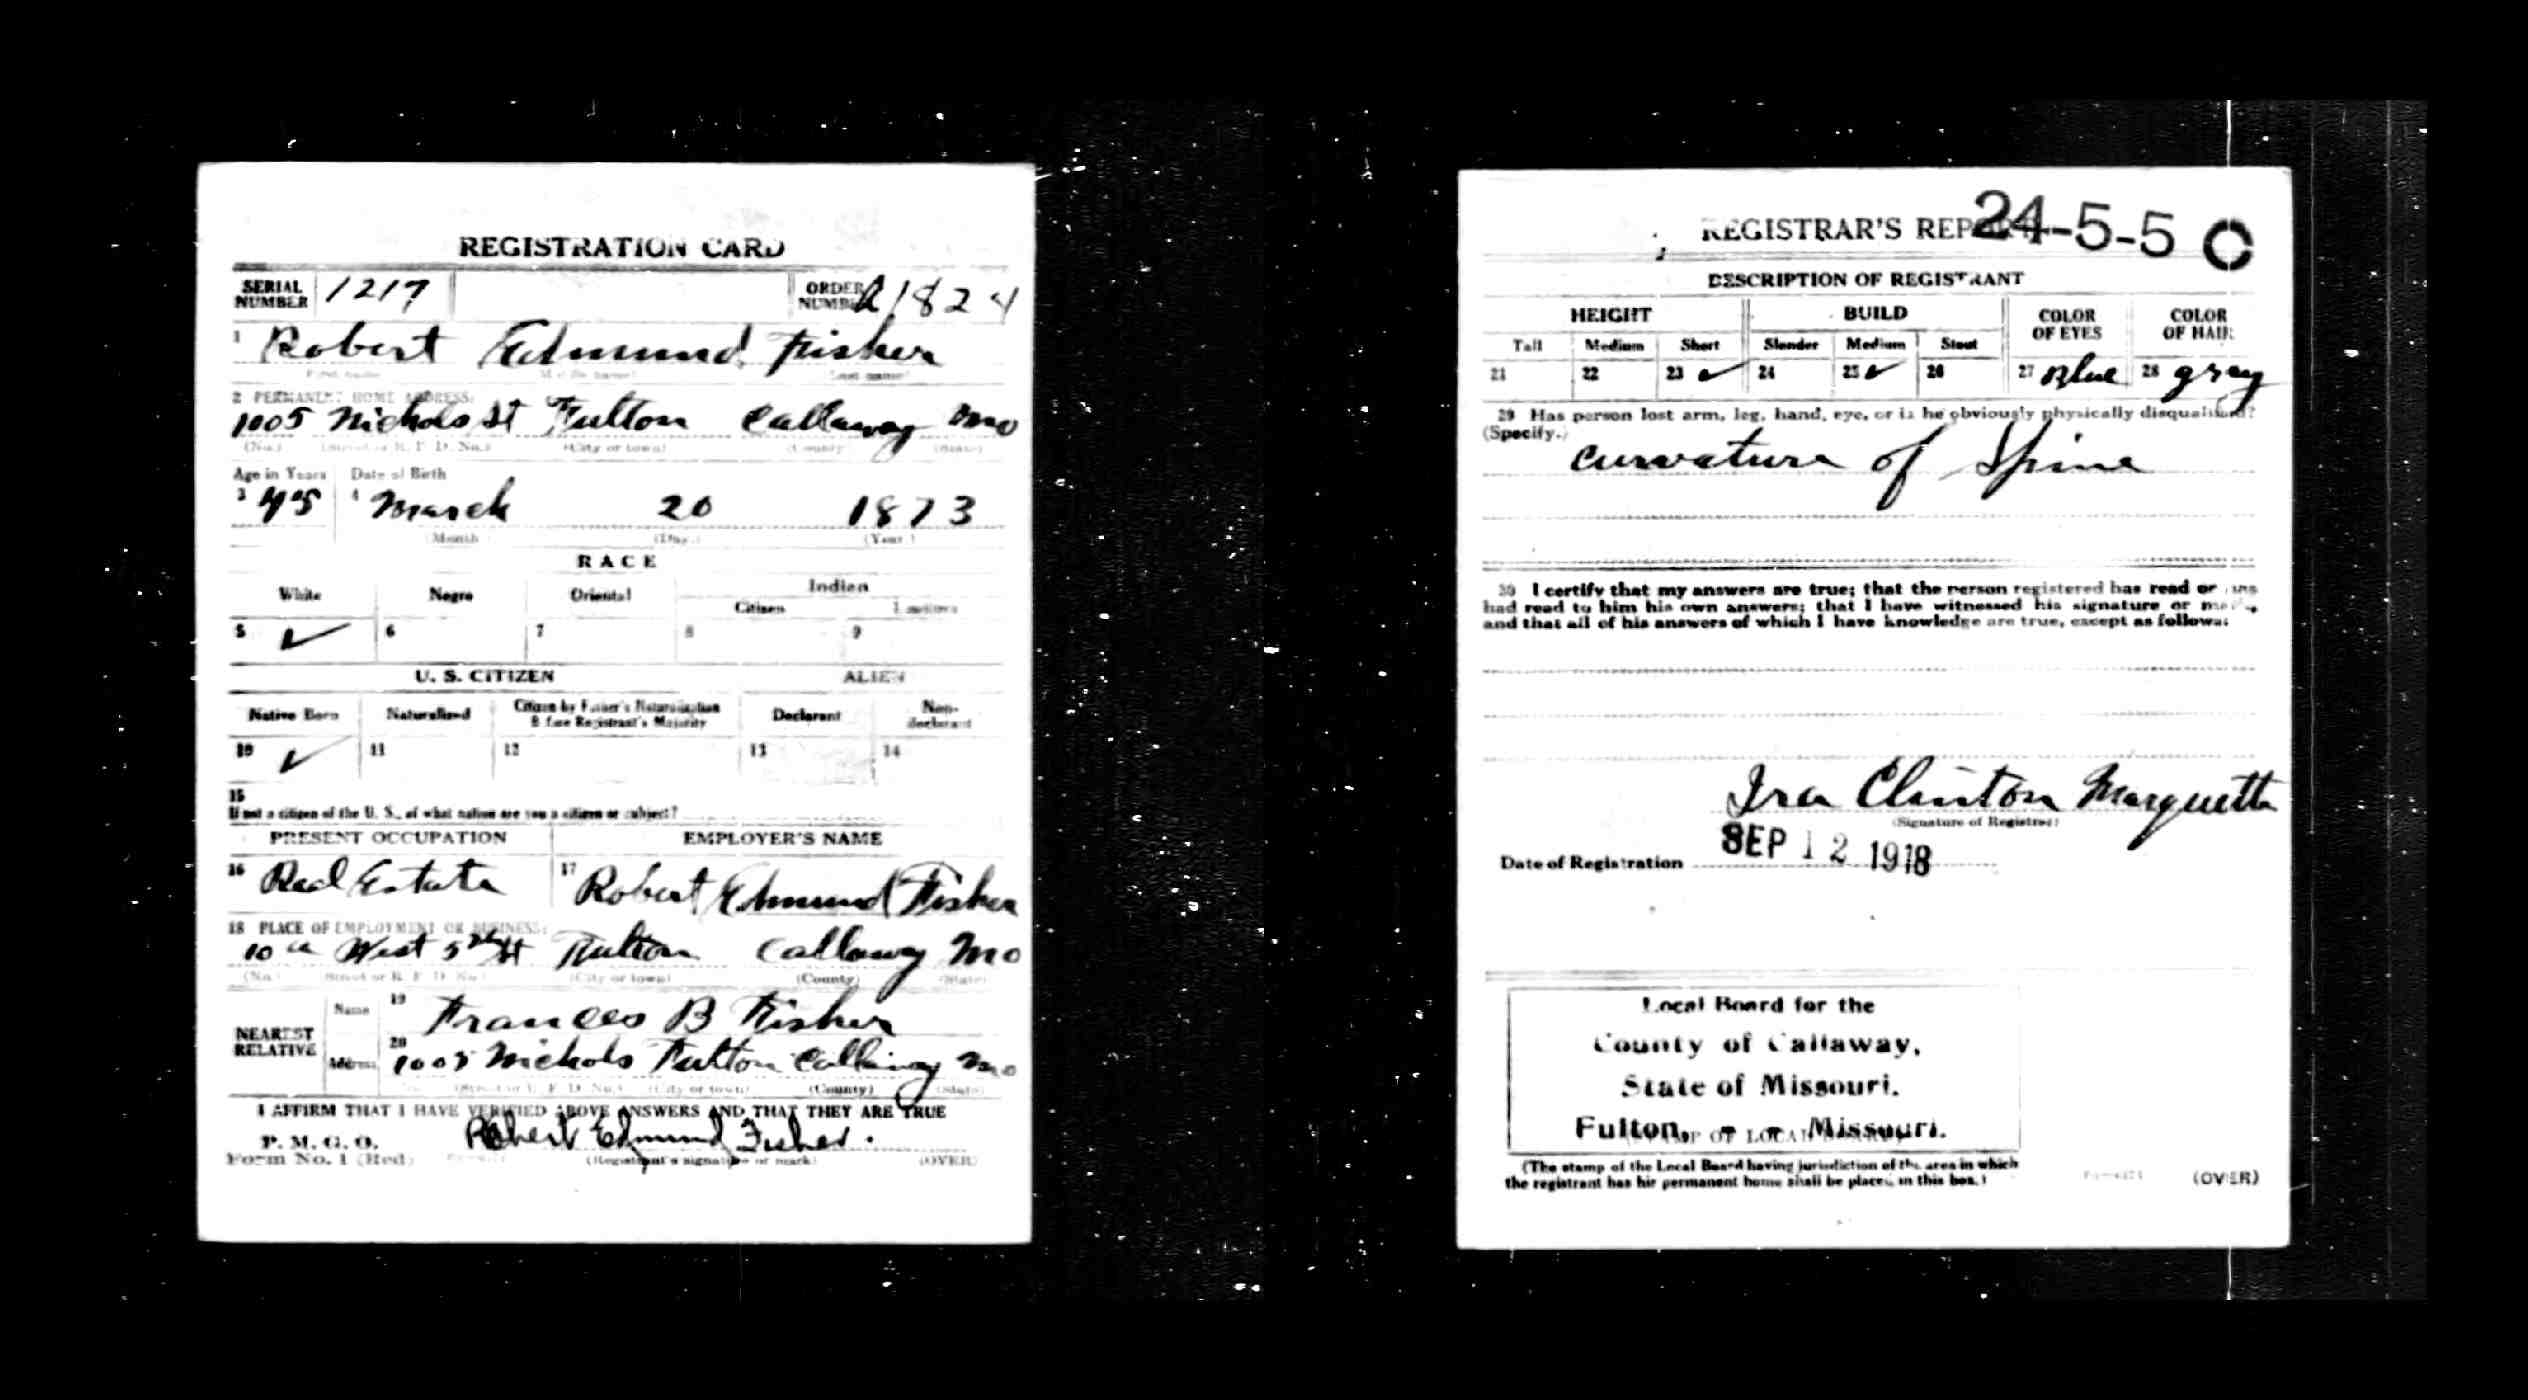 REGISTRATION CARD
SERIAL NUMBER 1217 ORDER NUMBER A1824
1 Robert Edmund Fisher
(First name) (Middle name) (Last name)
2 PERMANENT HOME ADDRESS:
1005 Nichols St Fulton Callaway Mo
(No.) (Street or R. F. D. No.) (City or town) (County) (State)
Age in Years Date of Birth
3 45 4 March 20 1873
(Month) (Day.) (Year.)
RACE
White Negro Oriental Indian
Citizen
5 ✓ 6 7 8 9
U. S. CITIZEN ALIEN
Native Born Naturalized Citizen by Father's Naturalization Before Registrant's Majority Declarant Non-declarant
10 ✓ 11 12 13 14
15
If not a citizen of the U. S., of what nation are you a citizen or subject?
PRESENT OCCUPATION EMPLOYER'S NAME
16 Real Estate 17 Robert Edmund Fisher
18 PLACE OF EMPLOYMENT OR BUSINESS:
10 West 5th St Fulton Callaway Mo
(No.) (Street or R. F. D. No.) (City or town) (County) (State)
NEAREST RELATIVE Name 19 Frances B Fisher
Address 20 1005 Nichols Fulton Callaway Mo
(Street or R. F. D. No.) (City or town) (County) (State)
I AFFIRM THAT I HAVE VERIFIED ABOVE ANSWERS AND THAT THEY ARE TRUE
P. M. G. O. Robert Edmund Fisher.
Form No. 1 (Red) (Registrant's signature or mark) (OVER)
REGISTRAR'S REPORT 24-5-5 C
DESCRIPTION OF REGISTRANT
HEIGHT BUILD COLOR OF EYES COLOR OF HAIR
Tall Medium Short Slender Medium Stout
21 22 23 ✓ 24 25 ✓ 26 27 Blue 28 gray
29 Has person lost arm, leg, hand, eye, or is he obviously physically disqualified?
(Specify.)
curvature of Spine
30 I certify that my answers are true; that the person registered has read or has
had read to him his own answers; that I have witnessed his signature or mark,
and that all of his answers of which I have knowledge are true, except as follows:
Ira Clinton Marquette
(Signature of Registrar)
Date of Registration SEP 12 1918
Local Board for the
County of Callaway,
State of Missouri.
Fulton, - - Missouri.
(STAMP OF LOCAL BOARD)
(The stamp of the Local Board having jurisdiction of the area in which
the registrant has his permanent home shall be placed in this box.)
(OVER)